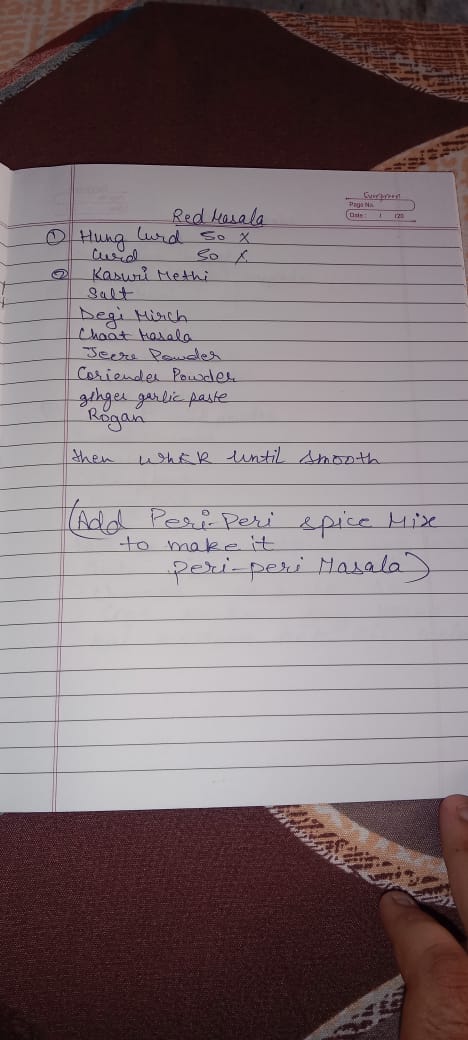 Evergreen
Page No.
Date: / /20
Red Masala
① Hung Curd 50 %
Curd 50 %
② Kasuri Methi
Salt
Degi Mirch
Chaat Masala
Jeera Powder
Coriender Powder
ginger garlic paste
Rogan
then whisk until smooth
(Add Peri-Peri spice Mix
to make it
peri-peri Masala)